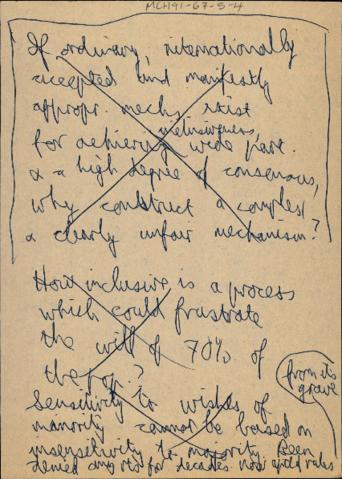 MCH91-67-5-4
If ordinary, internationally
accepted and manifestly
appropr. mechs exist
inclusiveness,
for achieving wide part.
& a high degree of consensus,
why construct a complex
& clearly unfair mechanism?
How inclusive is a process
which could frustrate
the will of 70% of
the pop?
from its
grave
Sensitivity to wishes of
minority cannot be based on
insensitivity to majority. Been
denied any rts for decades now rules